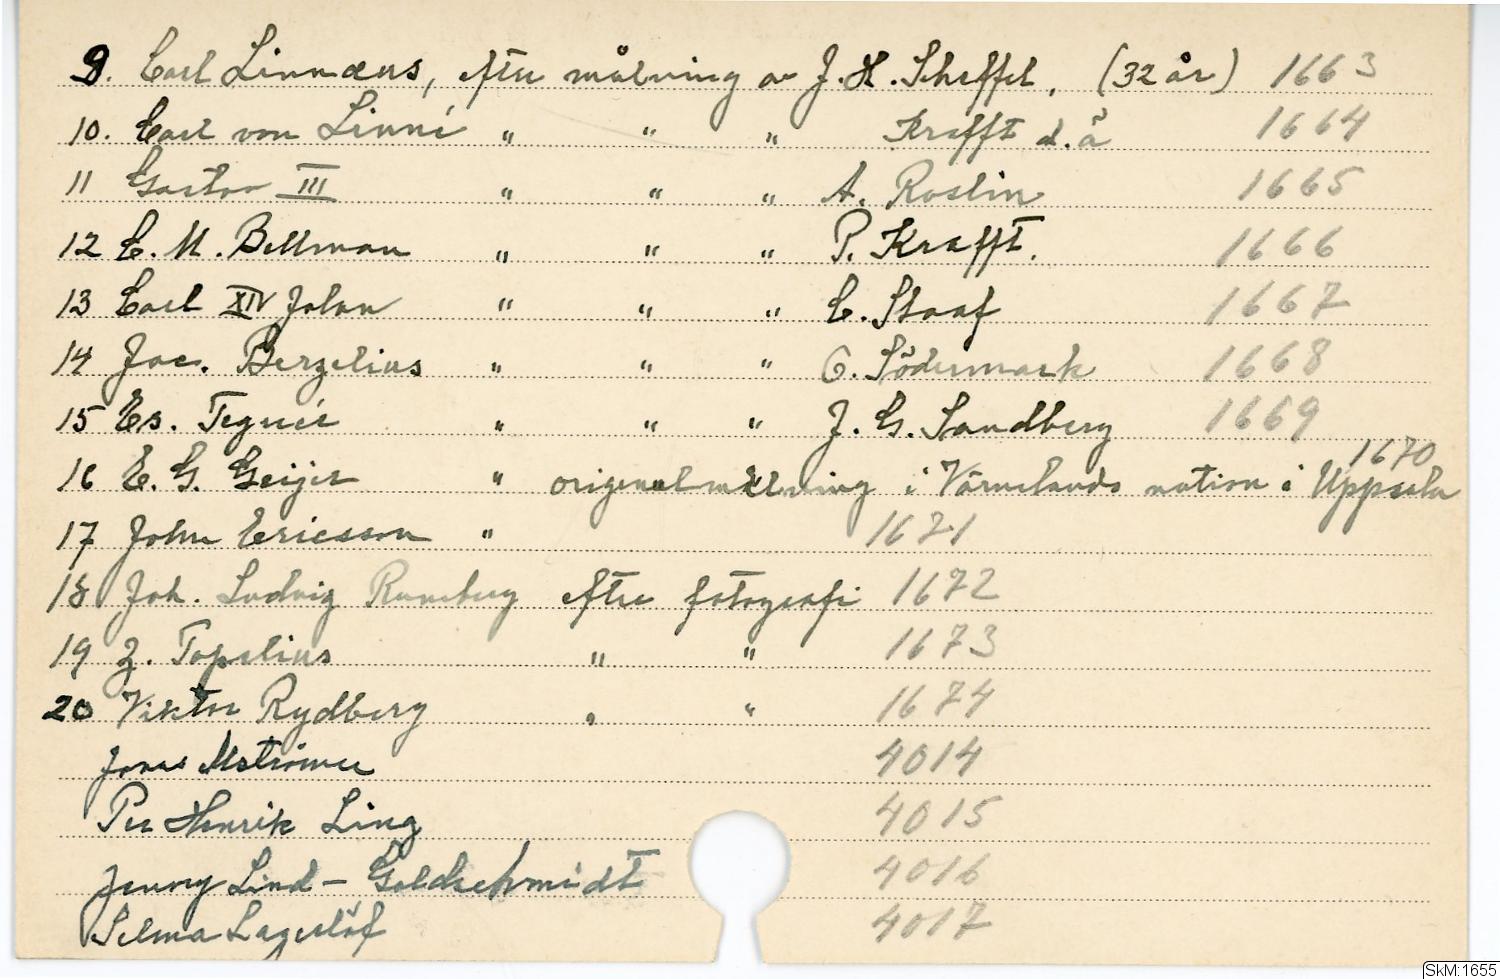 9. Carl Linnæus, efter målning av J. H. Scheffel. (32 år) 1663
10. Carl von Linné " " " Krafft d. ä 1664
11 Gustav III " " " A. Roslin 1665
12 C. M. Bellman " " " P. Krafft. 1666
13 Carl XIV Johan " " " C. Staaf 1667
14 Jac. Berzelius " " " O. Södermark 1668
15 Es. Tegnér " " " J. G. Sandberg 1669
16 E. G. Geijer " originalmålning i Värmlands nation i Uppsala 1670
17 John Ericsson " 1671
18 Joh. Ludvig Runeberg efter fotografi 1672
19 Z. Topelius " " 1673
20 Viktor Rydberg " " 1674
Jonas Alströmer 4014
Per Henrik Ling 4015
Jenny Lind - Goldschmidt 4016
Selma Lagerlöf 4017
SkM:1655